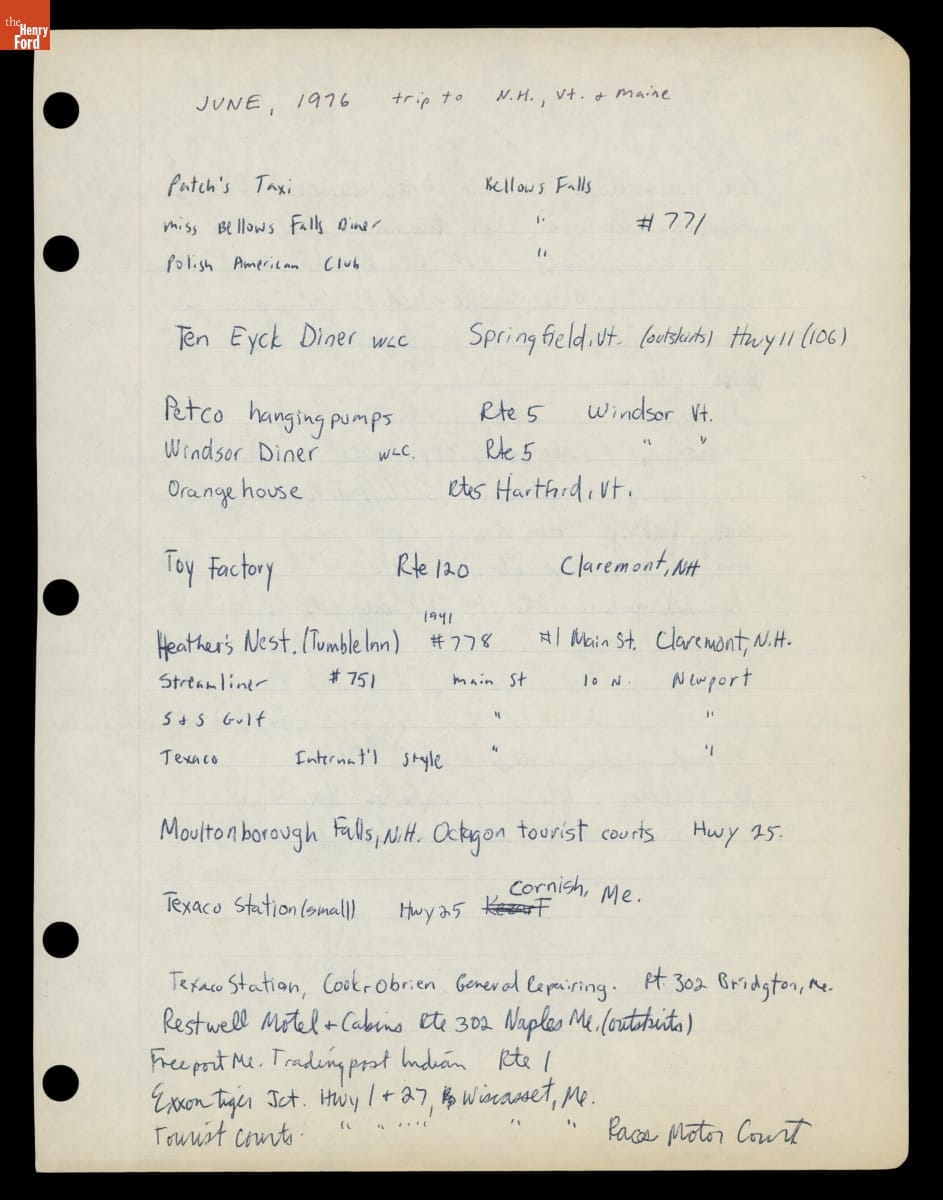 the Henry Ford
JUNE, 1976 trip to N.H., Vt. + Maine
Patch's Taxi Bellows Falls
Miss Bellows Falls Diner " #771
Polish American Club "
Ten Eyck Diner WLC Springfield, Vt. (outskirts) Hwy 11 (106)
Petco hanging pumps Rte 5 Windsor Vt.
Windsor Diner WLC. Rte 5 " "
Orange house Rte 5 Hartford, Vt.
Toy Factory Rte 120 Claremont, NH
1941
Heather's Nest. (Tumble Inn) #778 #1 Main St. Claremont, N.H.
Streamliner #751 Main St 10 N. Newport
S & S Gulf " "
Texaco Internat'l Style " "
Moultonborough Falls, N.H. Octagon tourist courts Hwy 25.
Texaco Station (small) Hwy 25 Cornish, Me.
Texaco Station, Cook + Obrien General Repairing. Rt. 302 Bridgton, Me.
Restwell Motel + Cabins Rte 302 Naples Me. (outskirts)
Freeport Me. Trading post Indian Rte 1
Exxon tiger Jct. Hwy 1 + 27, Wiscasset, Me.
Tourist courts " " " " " " Motor Court